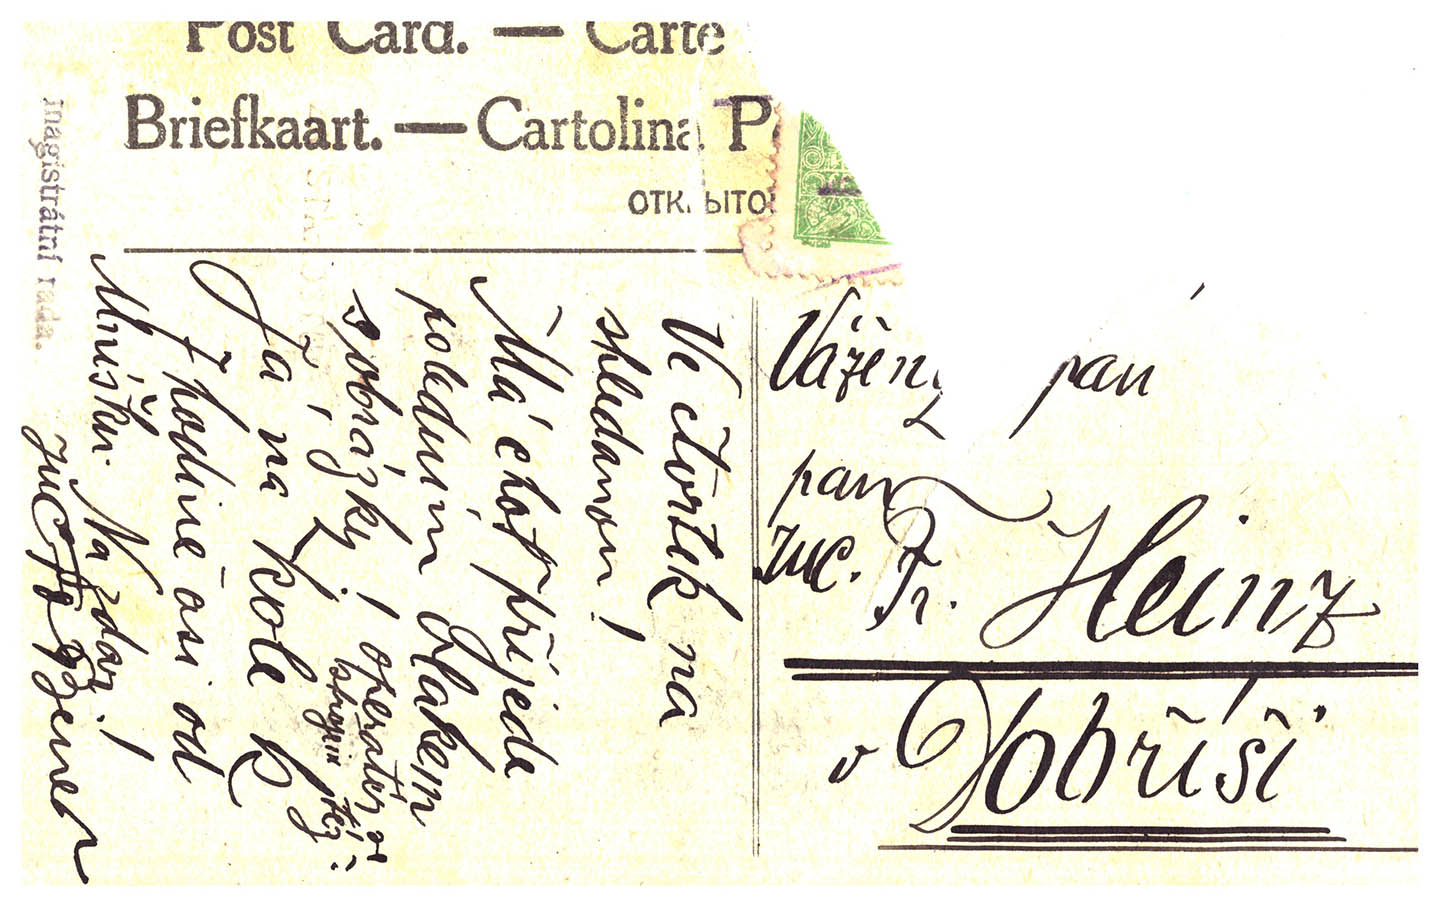 Post Card. — Carte
Briefkaart. — Cartolina P
ОТКРЫТО
magistrátní rada.
Ve čtvrtek na
shledanou!
Má choť přijede
poledním vlakem
s obrázky,
operatér
Já na kole k
7 hodině asi od
Mníšku. Nazdar!
Vážený pan
pan
JUC. Fr. Heinz
v Dobříši